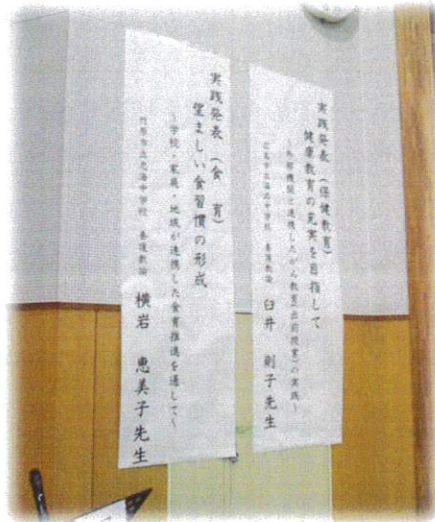 実践発表（保健教育）
健康教育の充実を目指して
～外部機関と連携したがん教育（出前授業）の実践～
養護教諭 臼井 則子先生
実践発表（食 育）
望ましい食習慣の形成
～学校・家庭・地域が連携した食育推進を通して～
竹原市立忠海中学校 養護教諭 横岩 恵美子先生